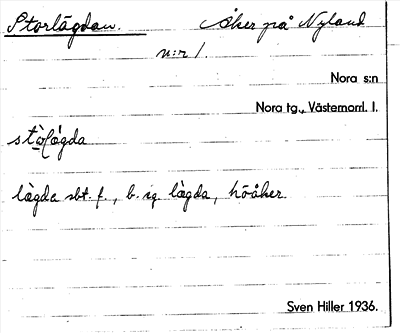 Storlägdan. Åker på Nyland
n:r 1.
Nora s:n
Nora tg., Västernorrl. l.
lägda sbt. f., b. sg. lägda, höåker.
Sven Hiller 1936.